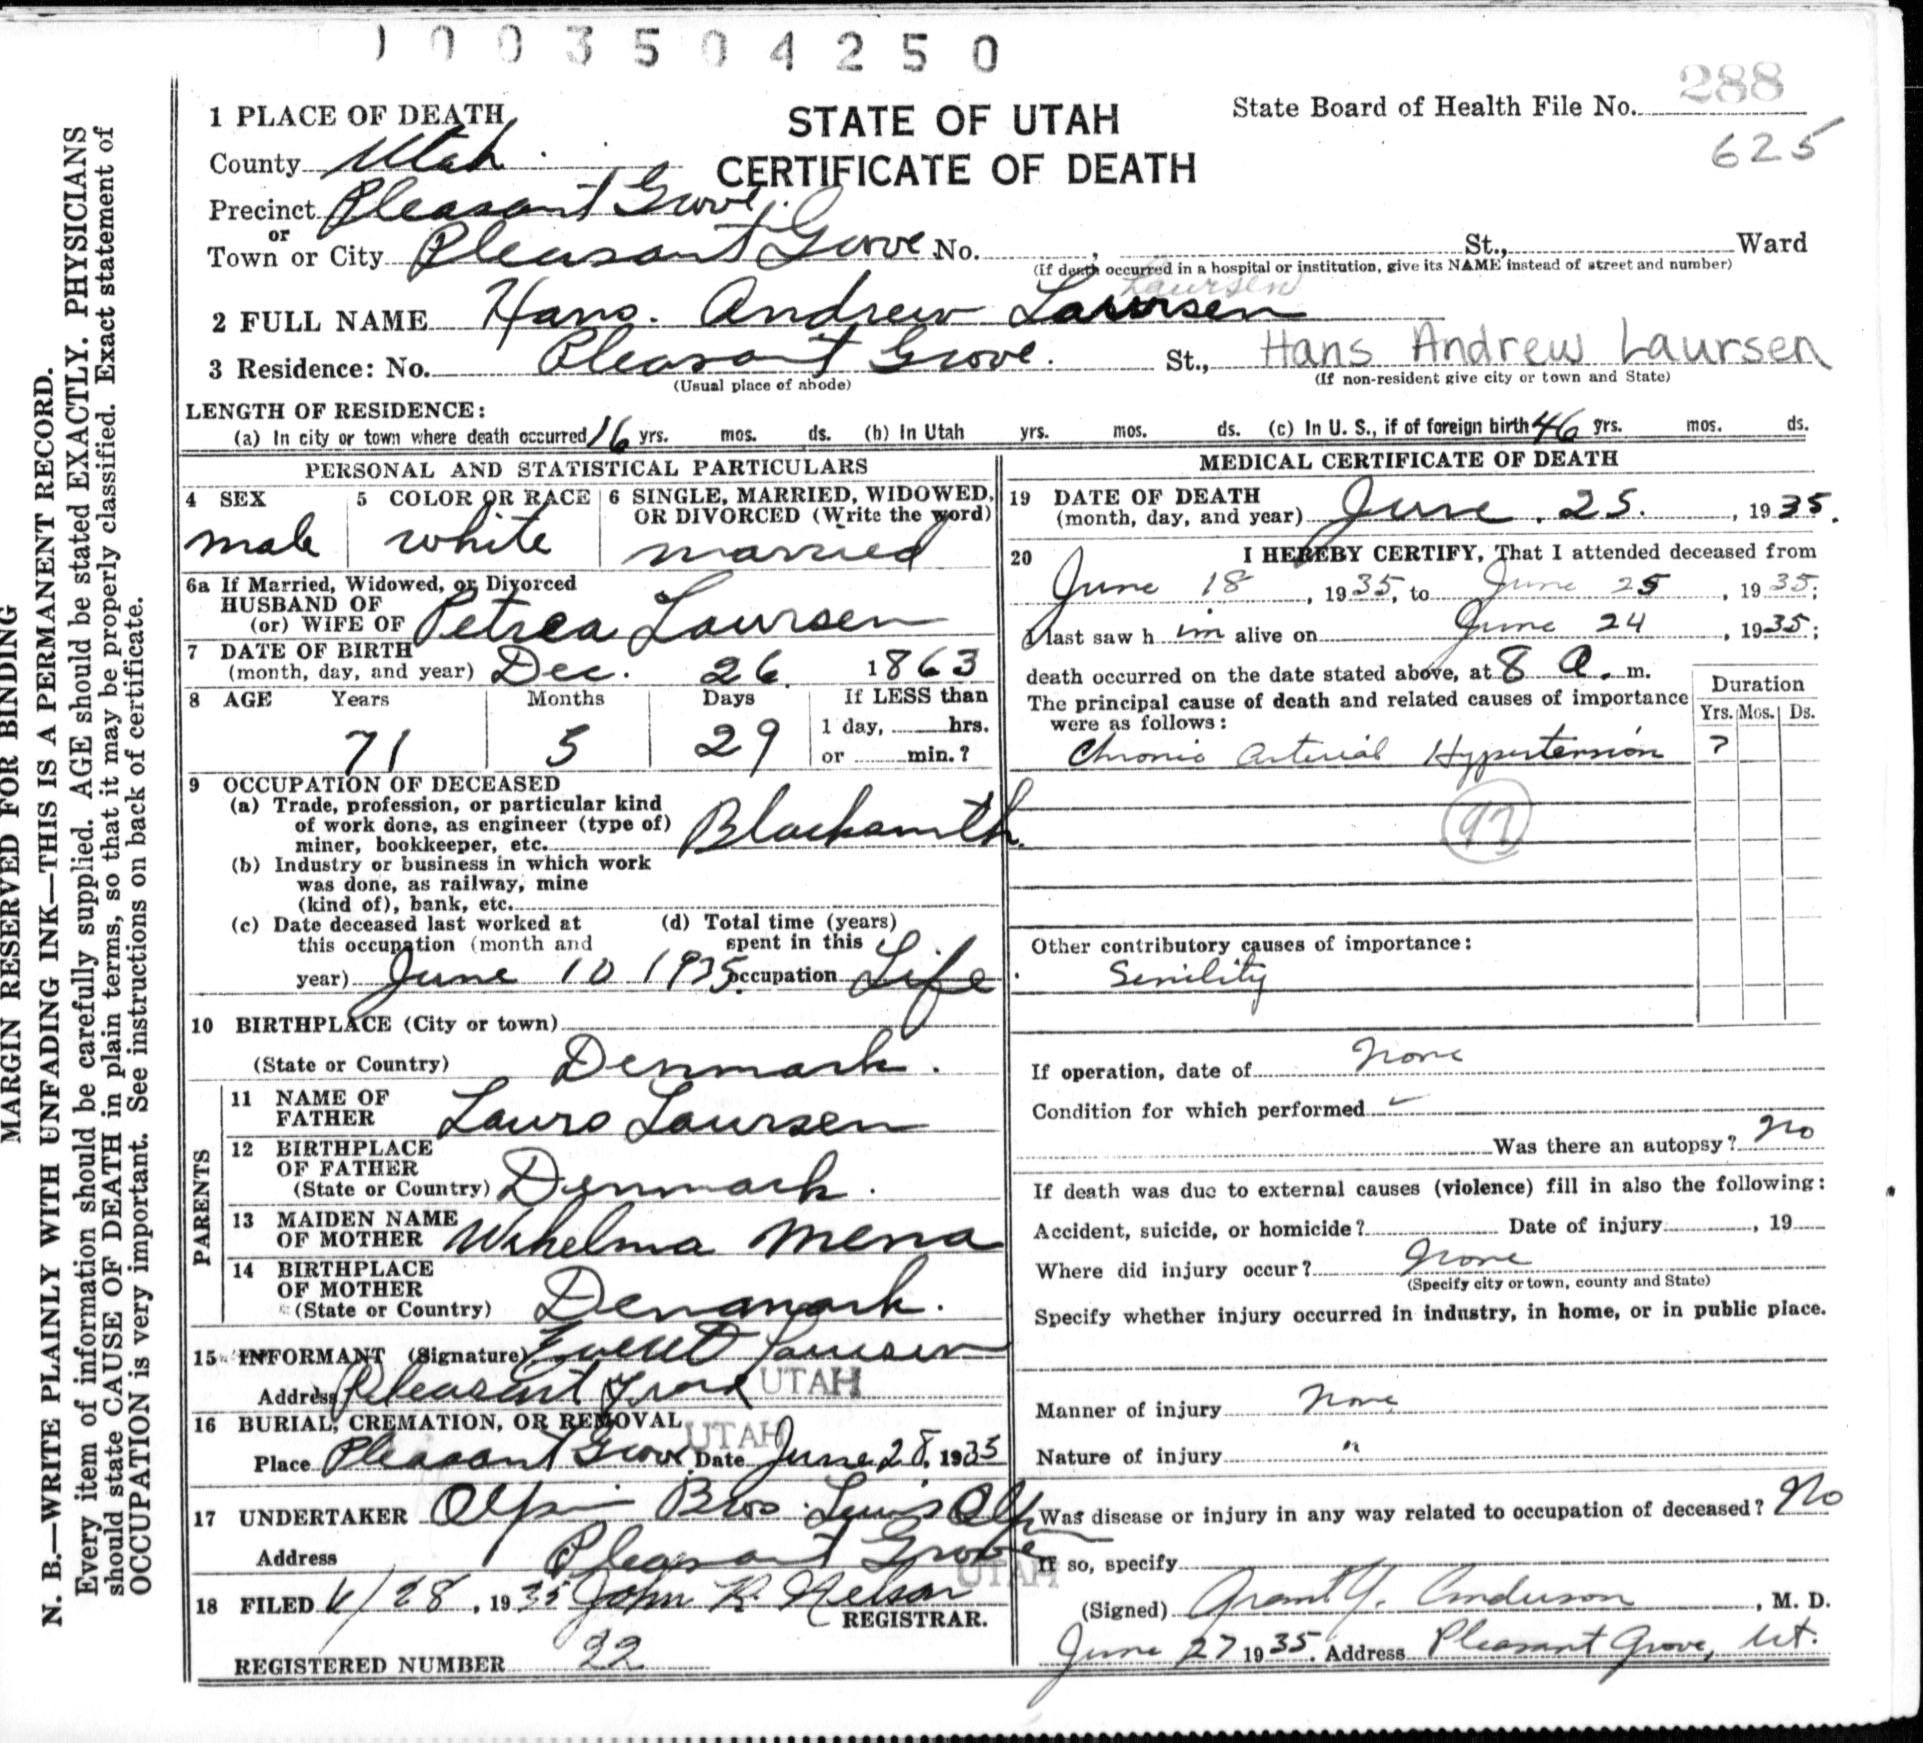 1003504250
288
625
1 PLACE OF DEATH
STATE OF UTAH
CERTIFICATE OF DEATH
State Board of Health File No.
County Utah
Precinct Pleasant Grove.
or
Town or City Pleasant Grove No. , St., Ward
(If death occurred in a hospital or institution, give its NAME instead of street and number)
Laursen
2 FULL NAME Hans. Andrew Laursen
3 Residence: No. Pleasant Grove. St., Hans Andrew Laursen
(Usual place of abode) (If non-resident give city or town and State)
LENGTH OF RESIDENCE:
(a) In city or town where death occurred 16 yrs. mos. ds. (b) In Utah yrs. mos. ds. (c) In U. S., if of foreign birth 46 yrs. mos. ds.
PERSONAL AND STATISTICAL PARTICULARS
4 SEX
male
5 COLOR OR RACE
white
6 SINGLE, MARRIED, WIDOWED,
OR DIVORCED (Write the word)
married
6a If Married, Widowed, or Divorced
HUSBAND OF
(or) WIFE OF Petrea Laursen
7 DATE OF BIRTH
(month, day, and year) Dec. 26 1863
8 AGE Years Months Days If LESS than
71 5 29 1 day, hrs.
or min.?
9 OCCUPATION OF DECEASED
(a) Trade, profession, or particular kind
of work done, as engineer (type of)
miner, bookkeeper, etc. Blacksmith.
(b) Industry or business in which work
was done, as railway, mine
(kind of), bank, etc.
(c) Date deceased last worked at
this occupation (month and
year) June 10 1935.
(d) Total time (years)
spent in this
occupation Life
10 BIRTHPLACE (City or town)
(State or Country) Denmark.
PARENTS
11 NAME OF
FATHER Laurs Laursen
12 BIRTHPLACE
OF FATHER
(State or Country) Denmark.
13 MAIDEN NAME
OF MOTHER Wihelma Mena
14 BIRTHPLACE
OF MOTHER
(State or Country) Denmark.
15 INFORMANT (Signature) Everett Laursen
Address Pleasant Grove UTAH
16 BURIAL, CREMATION, OR REMOVAL
UTAH
Place Pleasant Grove Date June 28, 1935
17 UNDERTAKER Olpin Bros. Lewis Olpin
Address Pleasant Grove
UTAH
18 FILED 6/28, 1935 John R. Nelson
REGISTRAR.
REGISTERED NUMBER 22
MEDICAL CERTIFICATE OF DEATH
19 DATE OF DEATH
(month, day, and year) June. 25. , 1935.
20 I HEREBY CERTIFY, That I attended deceased from
June 18 , 1935, to June 25 , 1935;
I last saw h im alive on June 24 , 1935;
death occurred on the date stated above, at 8 a. m.
The principal cause of death and related causes of importance
were as follows:
Duration
Yrs. Mos. Ds.
Chronic Arterial Hypertension ?
97
Other contributory causes of importance:
Senility
If operation, date of none
Condition for which performed
Was there an autopsy? no
If death was due to external causes (violence) fill in also the following:
Accident, suicide, or homicide? Date of injury , 19
Where did injury occur? None
(Specify city or town, county and State)
Specify whether injury occurred in industry, in home, or in public place.
Manner of injury none
Nature of injury "
Was disease or injury in any way related to occupation of deceased? No
If so, specify
(Signed) Grant Y. Anderson , M. D.
June 27 1935. Address Pleasant Grove, Ut.
MARGIN RESERVED FOR BINDING
N. B.—WRITE PLAINLY WITH UNFADING INK—THIS IS A PERMANENT RECORD.
Every item of information should be carefully supplied. AGE should be stated EXACTLY. PHYSICIANS
should state CAUSE OF DEATH in plain terms, so that it may be properly classified. Exact statement of
OCCUPATION is very important. See instructions on back of certificate.